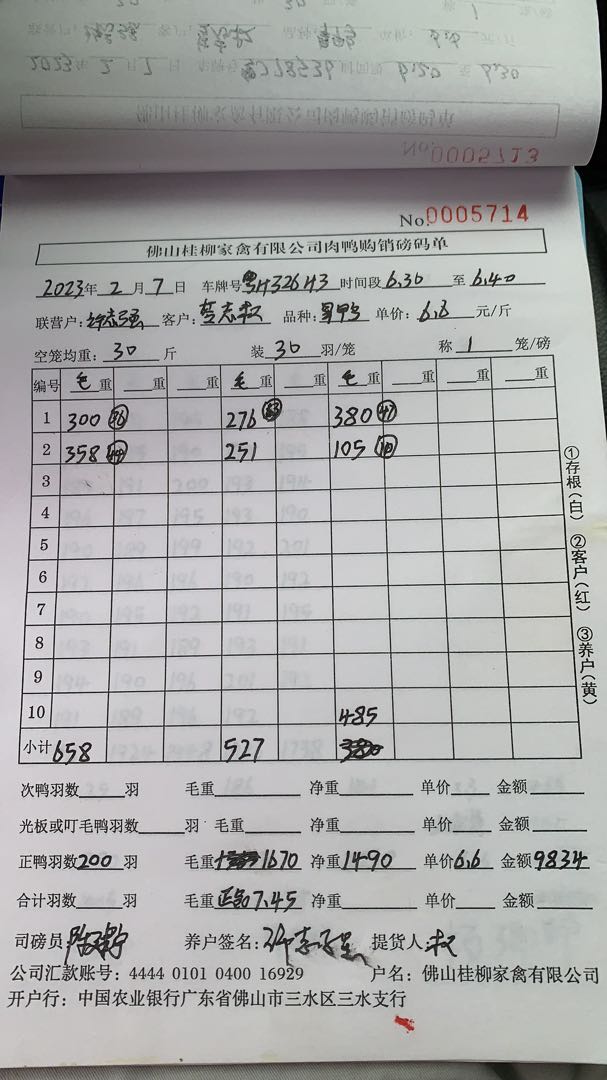 No.0005713
No.0005714
佛山桂柳家禽有限公司肉鸭购销磅码单
2023年 2 月 7 日 车牌号粤H32643 时间段 6.30 至 6.40
联营户: 客户: 品种: 单价: 6.6 元/斤
空笼均重: 30 斤 装 30 羽/笼 称 1 笼/磅
编号 毛重 重 重 毛重 重 毛重 重 重 重
1 300 36 276 33 380 47
2 358 44 251 105 10
3
4
5
6
7
8
9
10 485
小计 658 527
次鸭羽数 羽 毛重 净重 单价 金额
光板或叮毛鸭羽数 羽 毛重 净重 单价 金额
正鸭羽数 200 羽 毛重 1670 净重 1490 单价 6.6 金额 9834
合计羽数 毛重 7.45 净重 单价 金额
司磅员 养户签名: 提货人
公司汇款账号: 4444 0101 0400 16929 户名: 佛山桂柳家禽有限公司
开户行: 中国农业银行广东省佛山市三水区三水支行
①存根(白) ②客户(红) ③养户(黄)